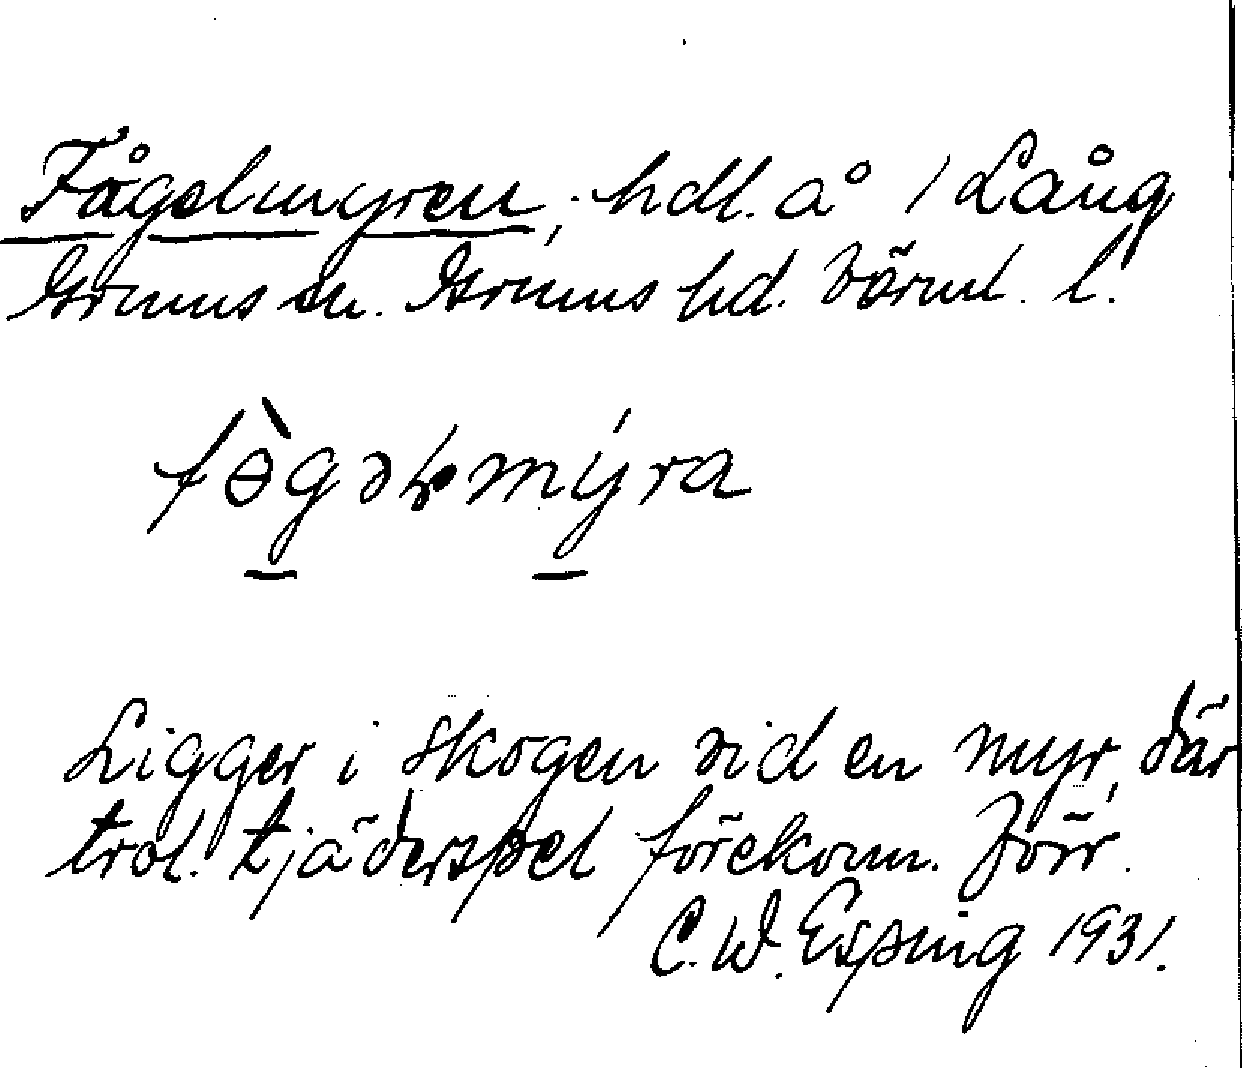 Fågelmyren, hdl. å 1 Lång
Grums sn. Grums hd. Värml. l.
fɵ̀gəɽmýra
Ligger i skogen vid en myr, där
trol. tjäderspel förekomm. förr.
C. W. Esping 1931.